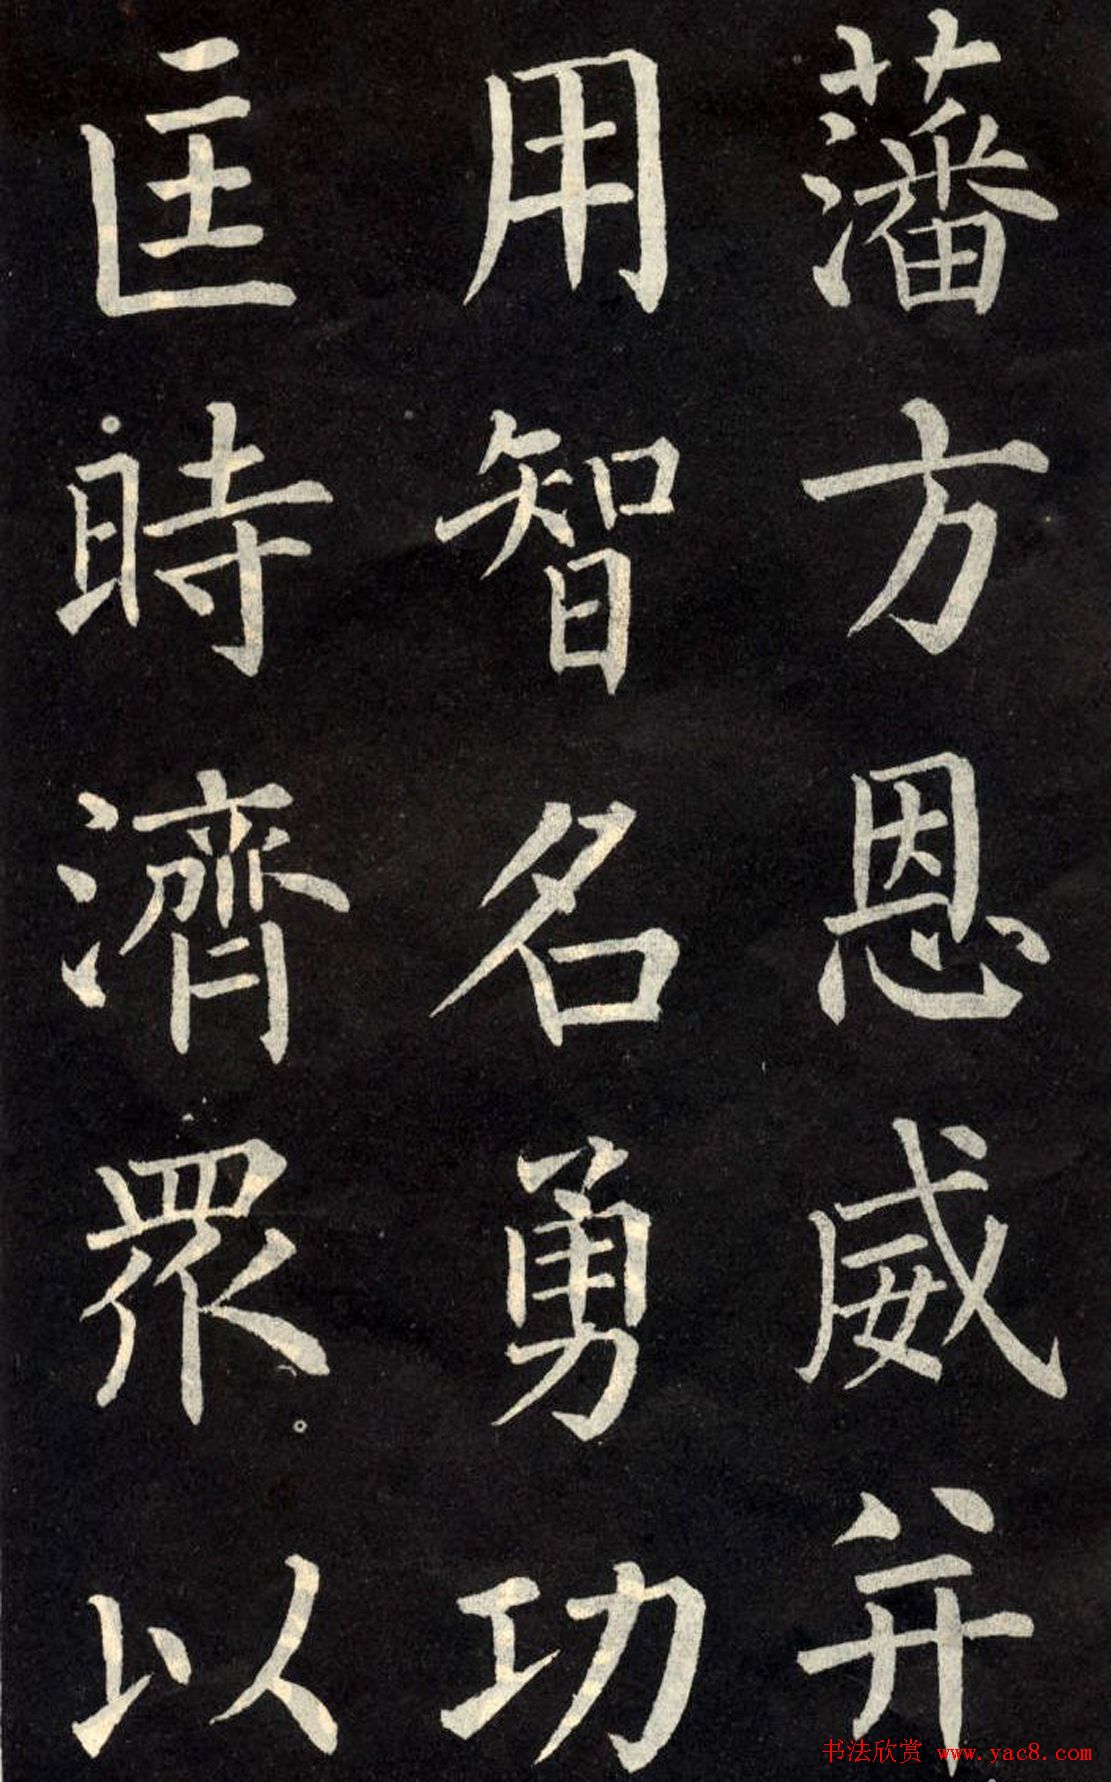 藩方恩威并
用智名勇功
匡時濟眾以
书法欣赏 www.yac8.com